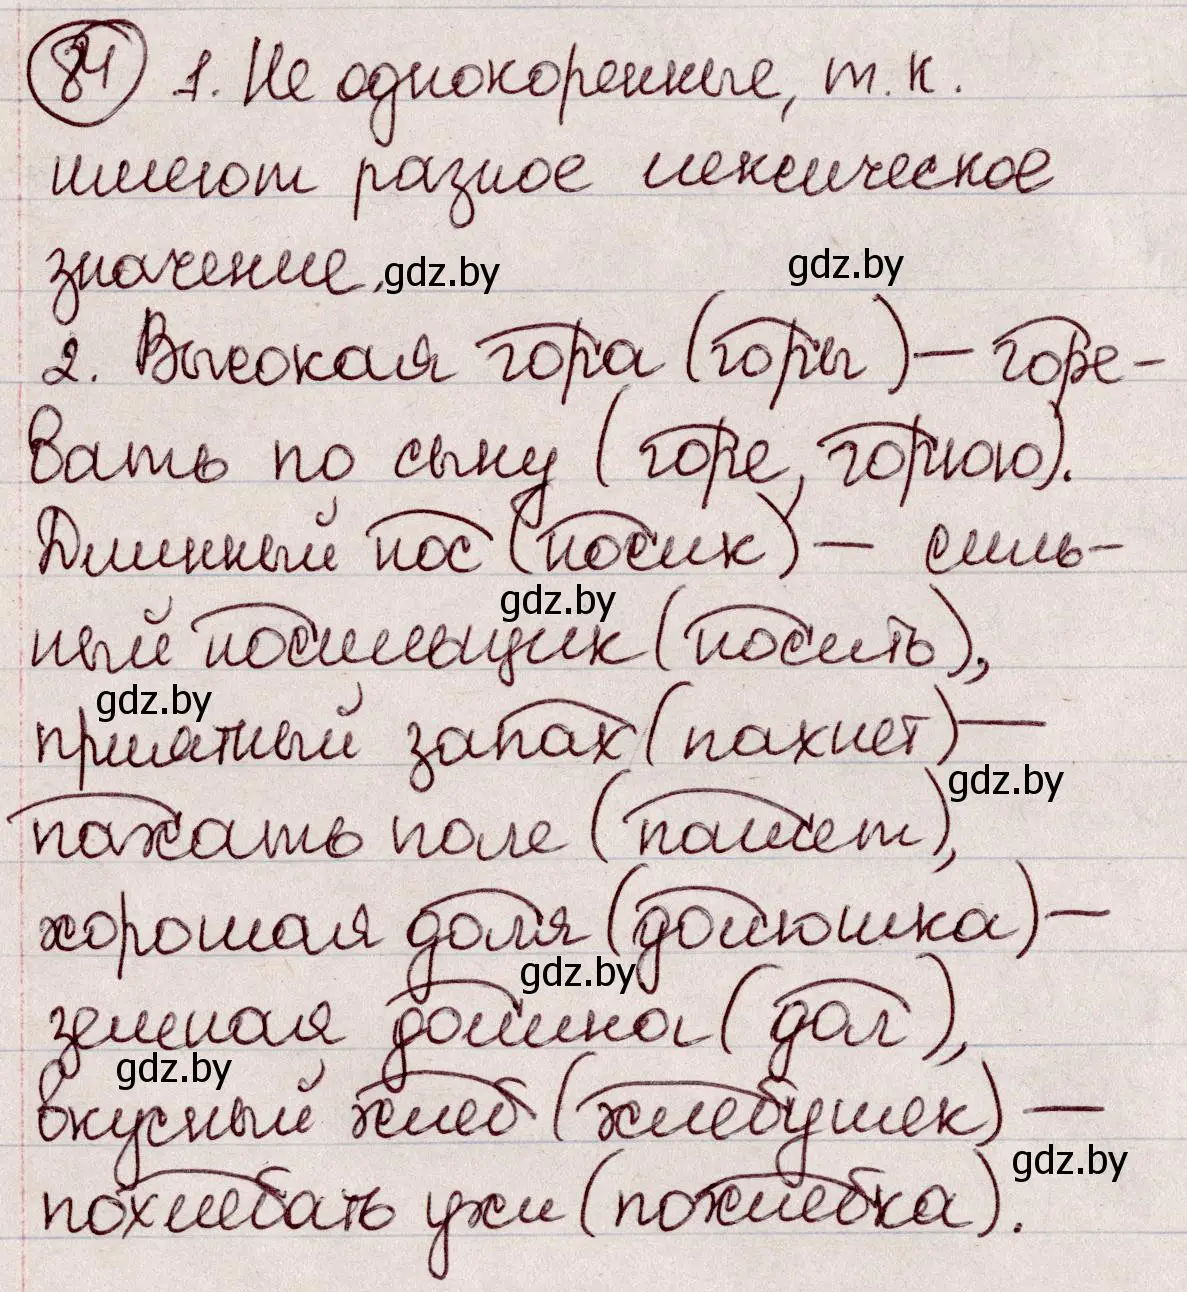 84 1. Не однокоренные, т.к.
имеют разное лексическое
значение. gdz.by gdz.by
2. Высокая гора (горы) — горе-
вать по сыну (горе, горюю).
Длинный нос (носик) — силь-
gdz.by
ный носильщик (носить),
gdz.by
приятный запах (пахнет) —
gdz.by
пахать поле (пашет),
хорошая доля (долюшка) —
gdz.by
зеленая долина (дол),
gdz.by
вкусный хлеб (хлебушек) —
gdz.by
похлебать ухи (похлебка).